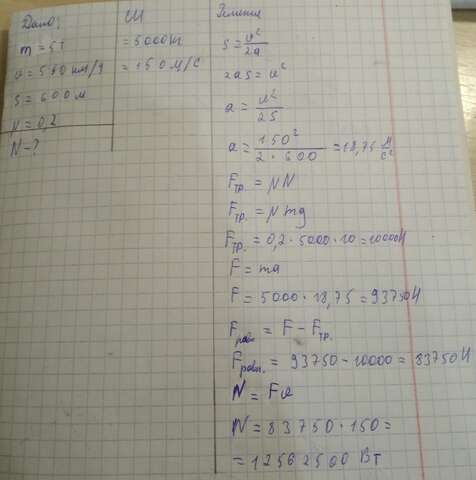 Дано:
m = 5т
υ = 540 км/ч
s = 600 м
μ = 0,2
N - ?
СИ
= 5000 кг
= 150 м/с
Решение
s = υ²/2a
2as = υ²
a = υ²/2s
a = 150²/2 · 600 = 18,75 м/с²
Fтр. = μN
Fтр. = μmg
Fтр. = 0,2 · 5000 · 10 = 10000Н
F = ma
F = 5000 · 18,75 = 93750Н
Fравн = F - Fтр.
Fравн. = 93750 - 10000 = 83750Н
N = Fυ
N = 83750 · 150 =
= 12562500 Вт